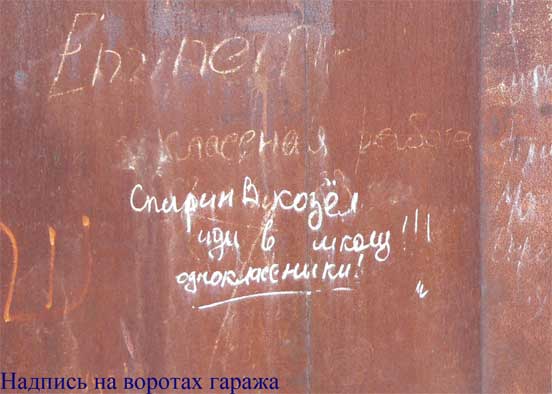 Египет
классная работа
Спирин В козёл
иди в школу!!!
одноклассники!
Надпись на воротах гаража